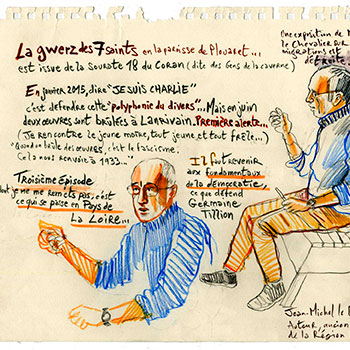 La gwerz des 7 saints en la paroisse de Plouaret...
est issue de la Sourate 18 du Coran (dite des Gens de la caverne)
En janvier 2015, dire "JE SUIS CHARLIE"
c'est défendre cette "polyphonie du divers"... Mais en juin
deux œuvres sont brûlées à Lanrivain. Première alerte...
(Je rencontre le jeune moine, tout jeune et tout frêle...)
"Quand on brûle des œuvres, c'est le fascisme.
Cela nous renvoie à 1933..."
Troisième épisode
dont je ne me remets pas, c'est
ce qui se passe en Pays de
la Loire...
Il faut revenir
aux fondamentaux
de la démocratie,
ce que défend
Germaine
Tillion
Une exposition de
le Chevalier sur
migrations est
détruite
Jean-Michel le B
Auteur, ancien
de la Région